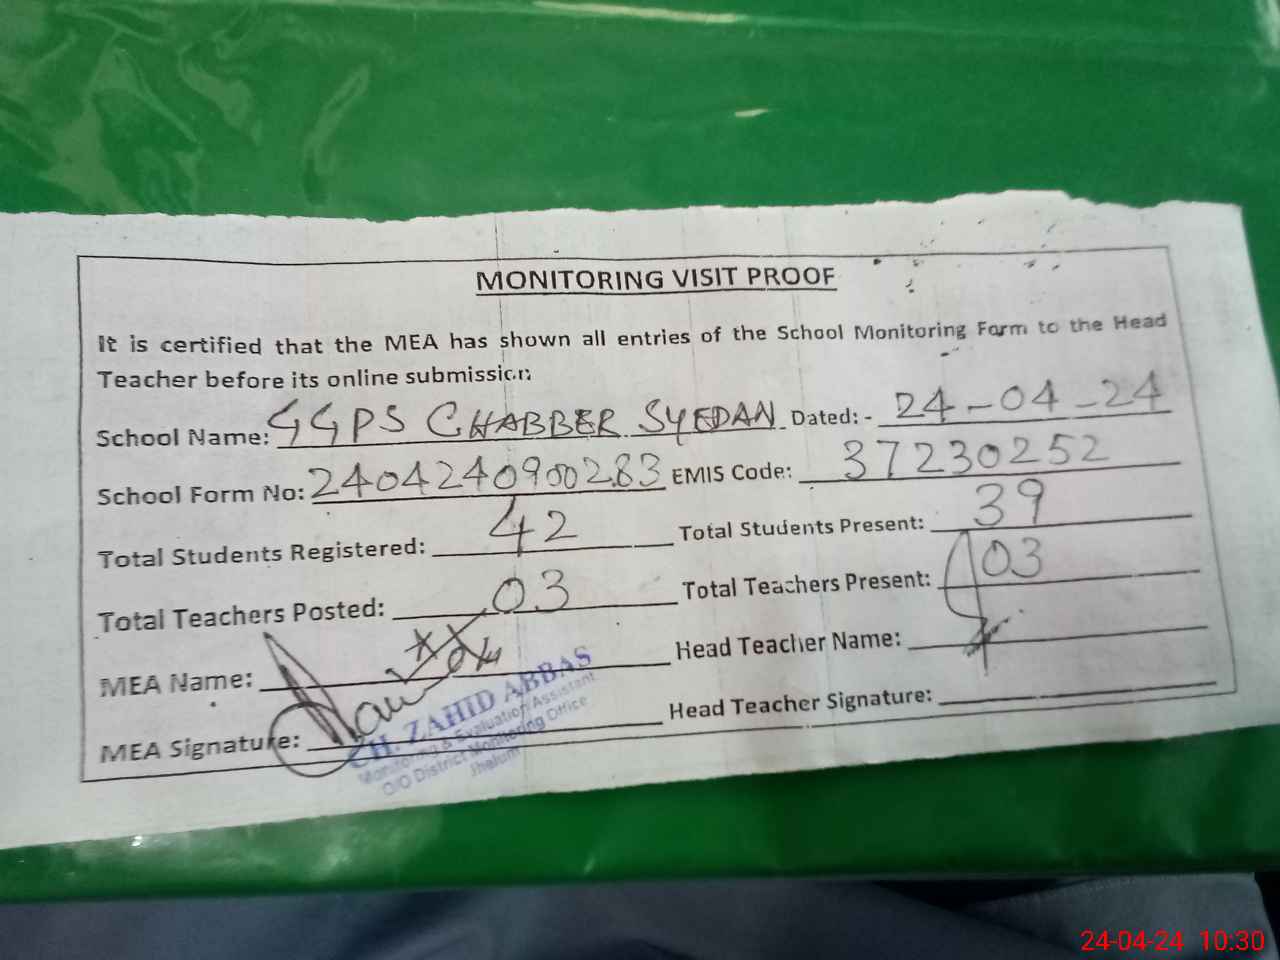 MONITORING VISIT PROOF
It is certified that the MEA has shown all entries of the School Monitoring Form to the Head
Teacher before its online submission
School Name: GGPS CHABBER SYEDAN Dated: - 24-04-24
School Form No: 240424090028­3 EMIS Code: 37230252
Total Students Registered: 42 Total Students Present: 39
Total Teachers Posted: 03 Total Teachers Present: 03
MEA Name: Head Teacher Name:
MEA Signature: Head Teacher Signature:
CH. ZAHID ABBAS
Monitoring & Evaluation Assistant
O/O District Monitoring Office
Jhelum
24-04-24 10:30